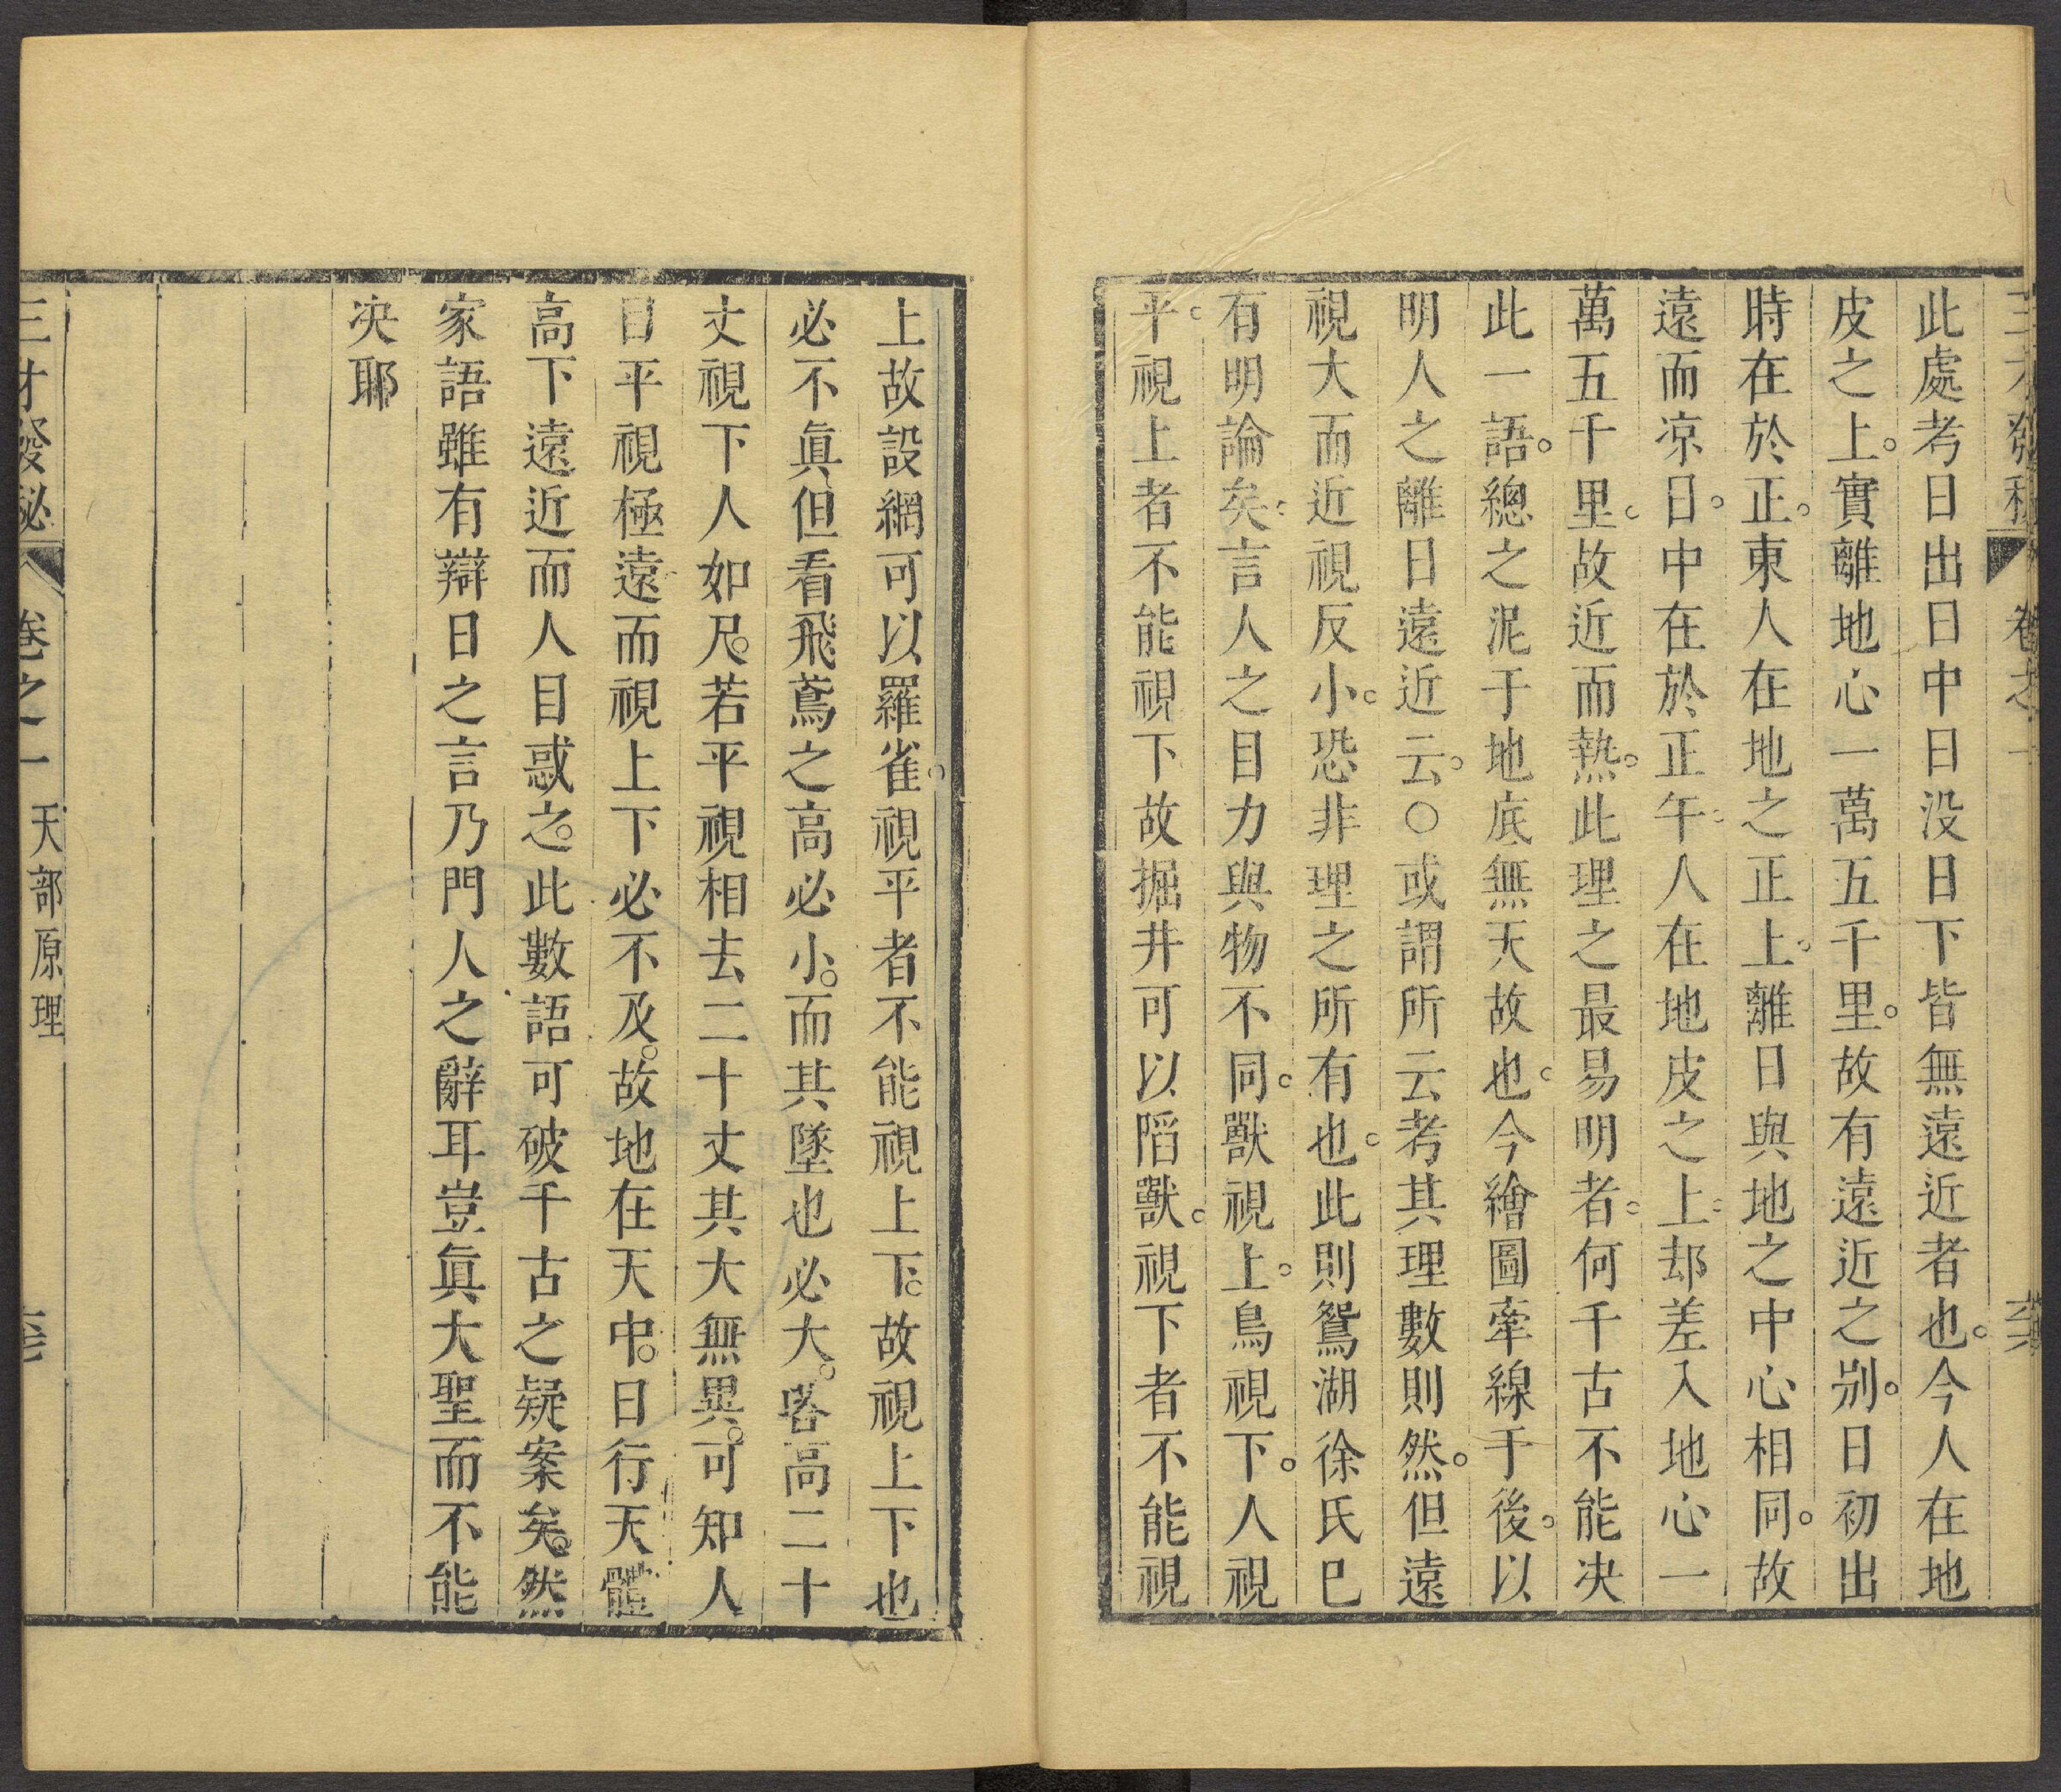 此處考日出日中日没日下皆無遠近者也。今人在地
皮之上。實離地心一萬五千里。故有遠近之别。日初出
時在於正。東人在地之正上。離日與地之中心相同。故
遠而凉日。中在於正午。人在地皮之上。却差入地心一
萬五千里。故近而熱。此理之最易明者。何千古不能决
此一語。總之泥于地底無天故也。今繪圖牽線于後。以
明人之離日遠近云。○或謂所云考其理數則然。但遠
視大而近視反小。恐非理之所有也。此則鴛湖徐氏巳
有明論矣。言人之目力與物不同。獸視上。鳥視下。人視
平。視上者不能視下故掘井可以陷獸。視下者不能視
上故設網可以羅雀。視平者不能視上下。故視上下也
必不眞但看飛鳶之高必小。而其墜也必大。塔高二十
丈視下人如尺。若平視相去二十丈其大無異。可知人
目平視極遠而視上下必不及。故地在天中。日行天體
高下遠近而人目惑之。此數語可破千古之疑案矣。然
家語雖有辯日之言乃門人之辭耳豈眞大聖而不能
决耶
三才發秘 卷之一 天部原理